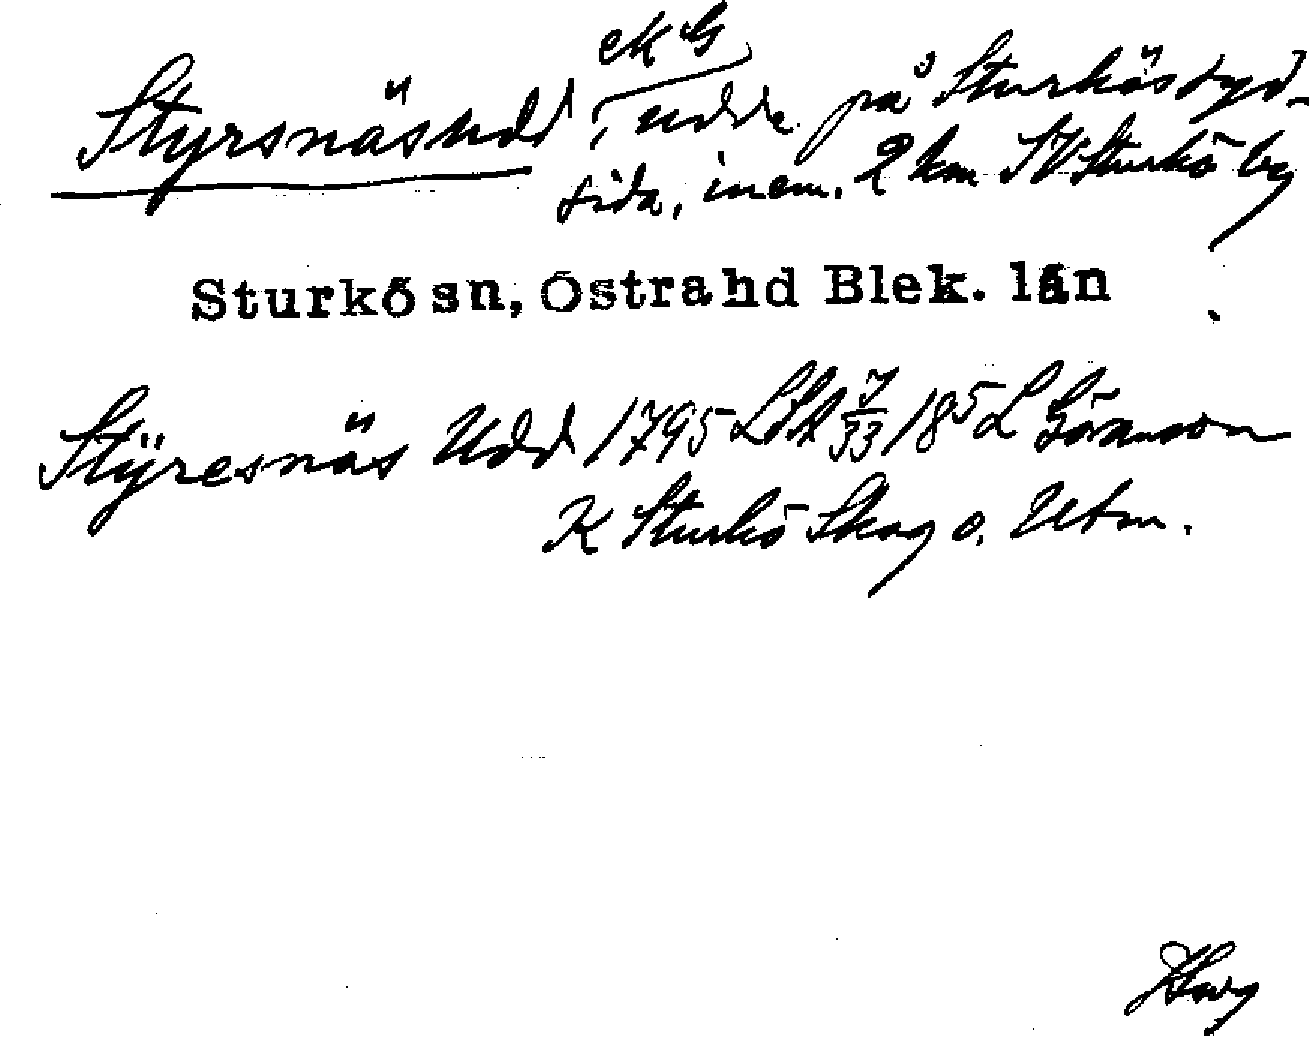 ek G
Styrsnäsudd, udde på Sturkös syd-
sida, inem. 2 km SV Sturkö by
Sturkö sn, Östra hd Blek. län
Styresnäs Udd 1795 LSA 7/33 18⁵ L Göransson
K Sturkö Skog o. Utm.